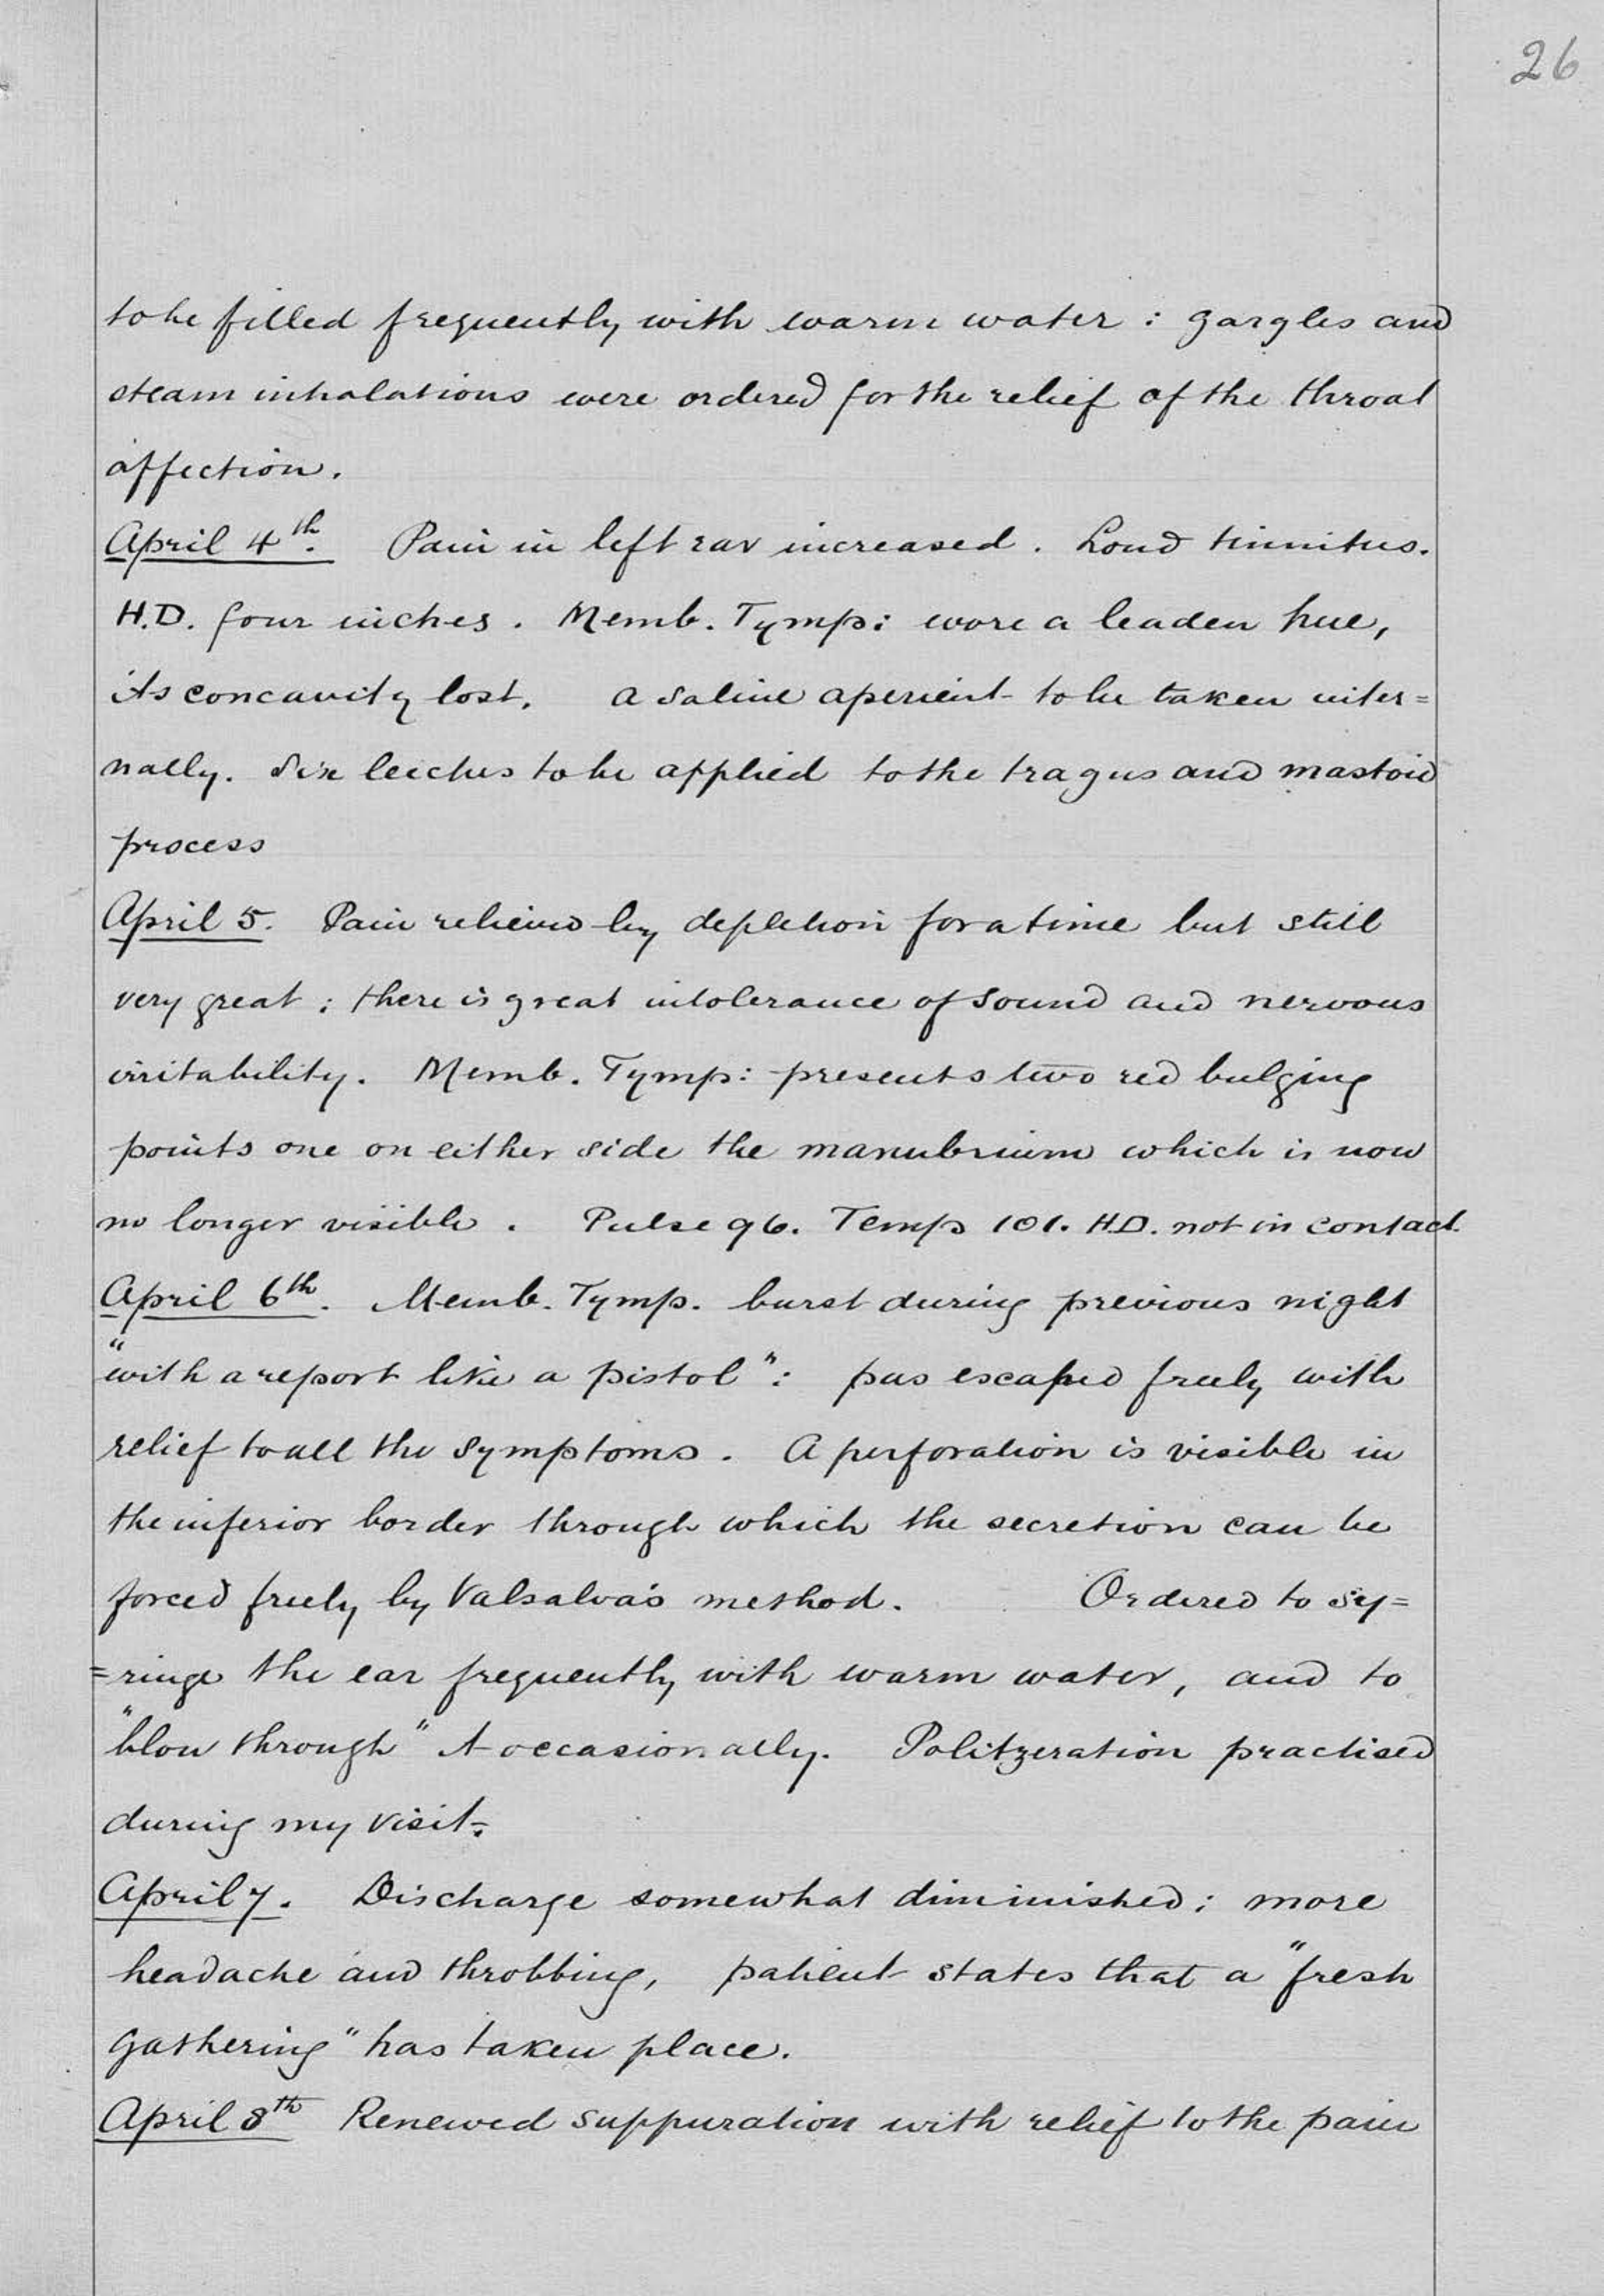 26
to be filled frequently with warm water : gargles and
steam inhalations were ordered for the relief of the throat
affection.
April 4th. Pain in left ear increased. Loud tinnitus.
H.D. four inches. Memb. Tymp: wore a leaden hue,
its concavity lost. A saline aperient to be taken inter=
nally. Six leeches to be applied to the tragus and mastoid
process
April 5. Pain relieved by depletion for a time but still
very great : there is great intolerance of sound and nervous
irritability. Memb. Tymp: presents two red bulging
points one on either side the manubrium which is now
no longer visible. Pulse 96. Temp 101. H.D. not in contact.
April 6th. Memb. Tymp. burst during previous night
"with a report like a pistol": pus escaped freely with
relief to all the symptoms. A perforation is visible in
the inferior border through which the secretion can be
forced freely by Valsalva's method. Ordered to sy=
=ringe the ear frequently with warm water, and to
"blow through" it occasionally. Politzeration practised
during my visit.
April 7. Discharge somewhat diminished; more
headache and throbbing, patient states that a "fresh
gathering" has taken place.
April 8th Renewed suppuration with relief to the pain